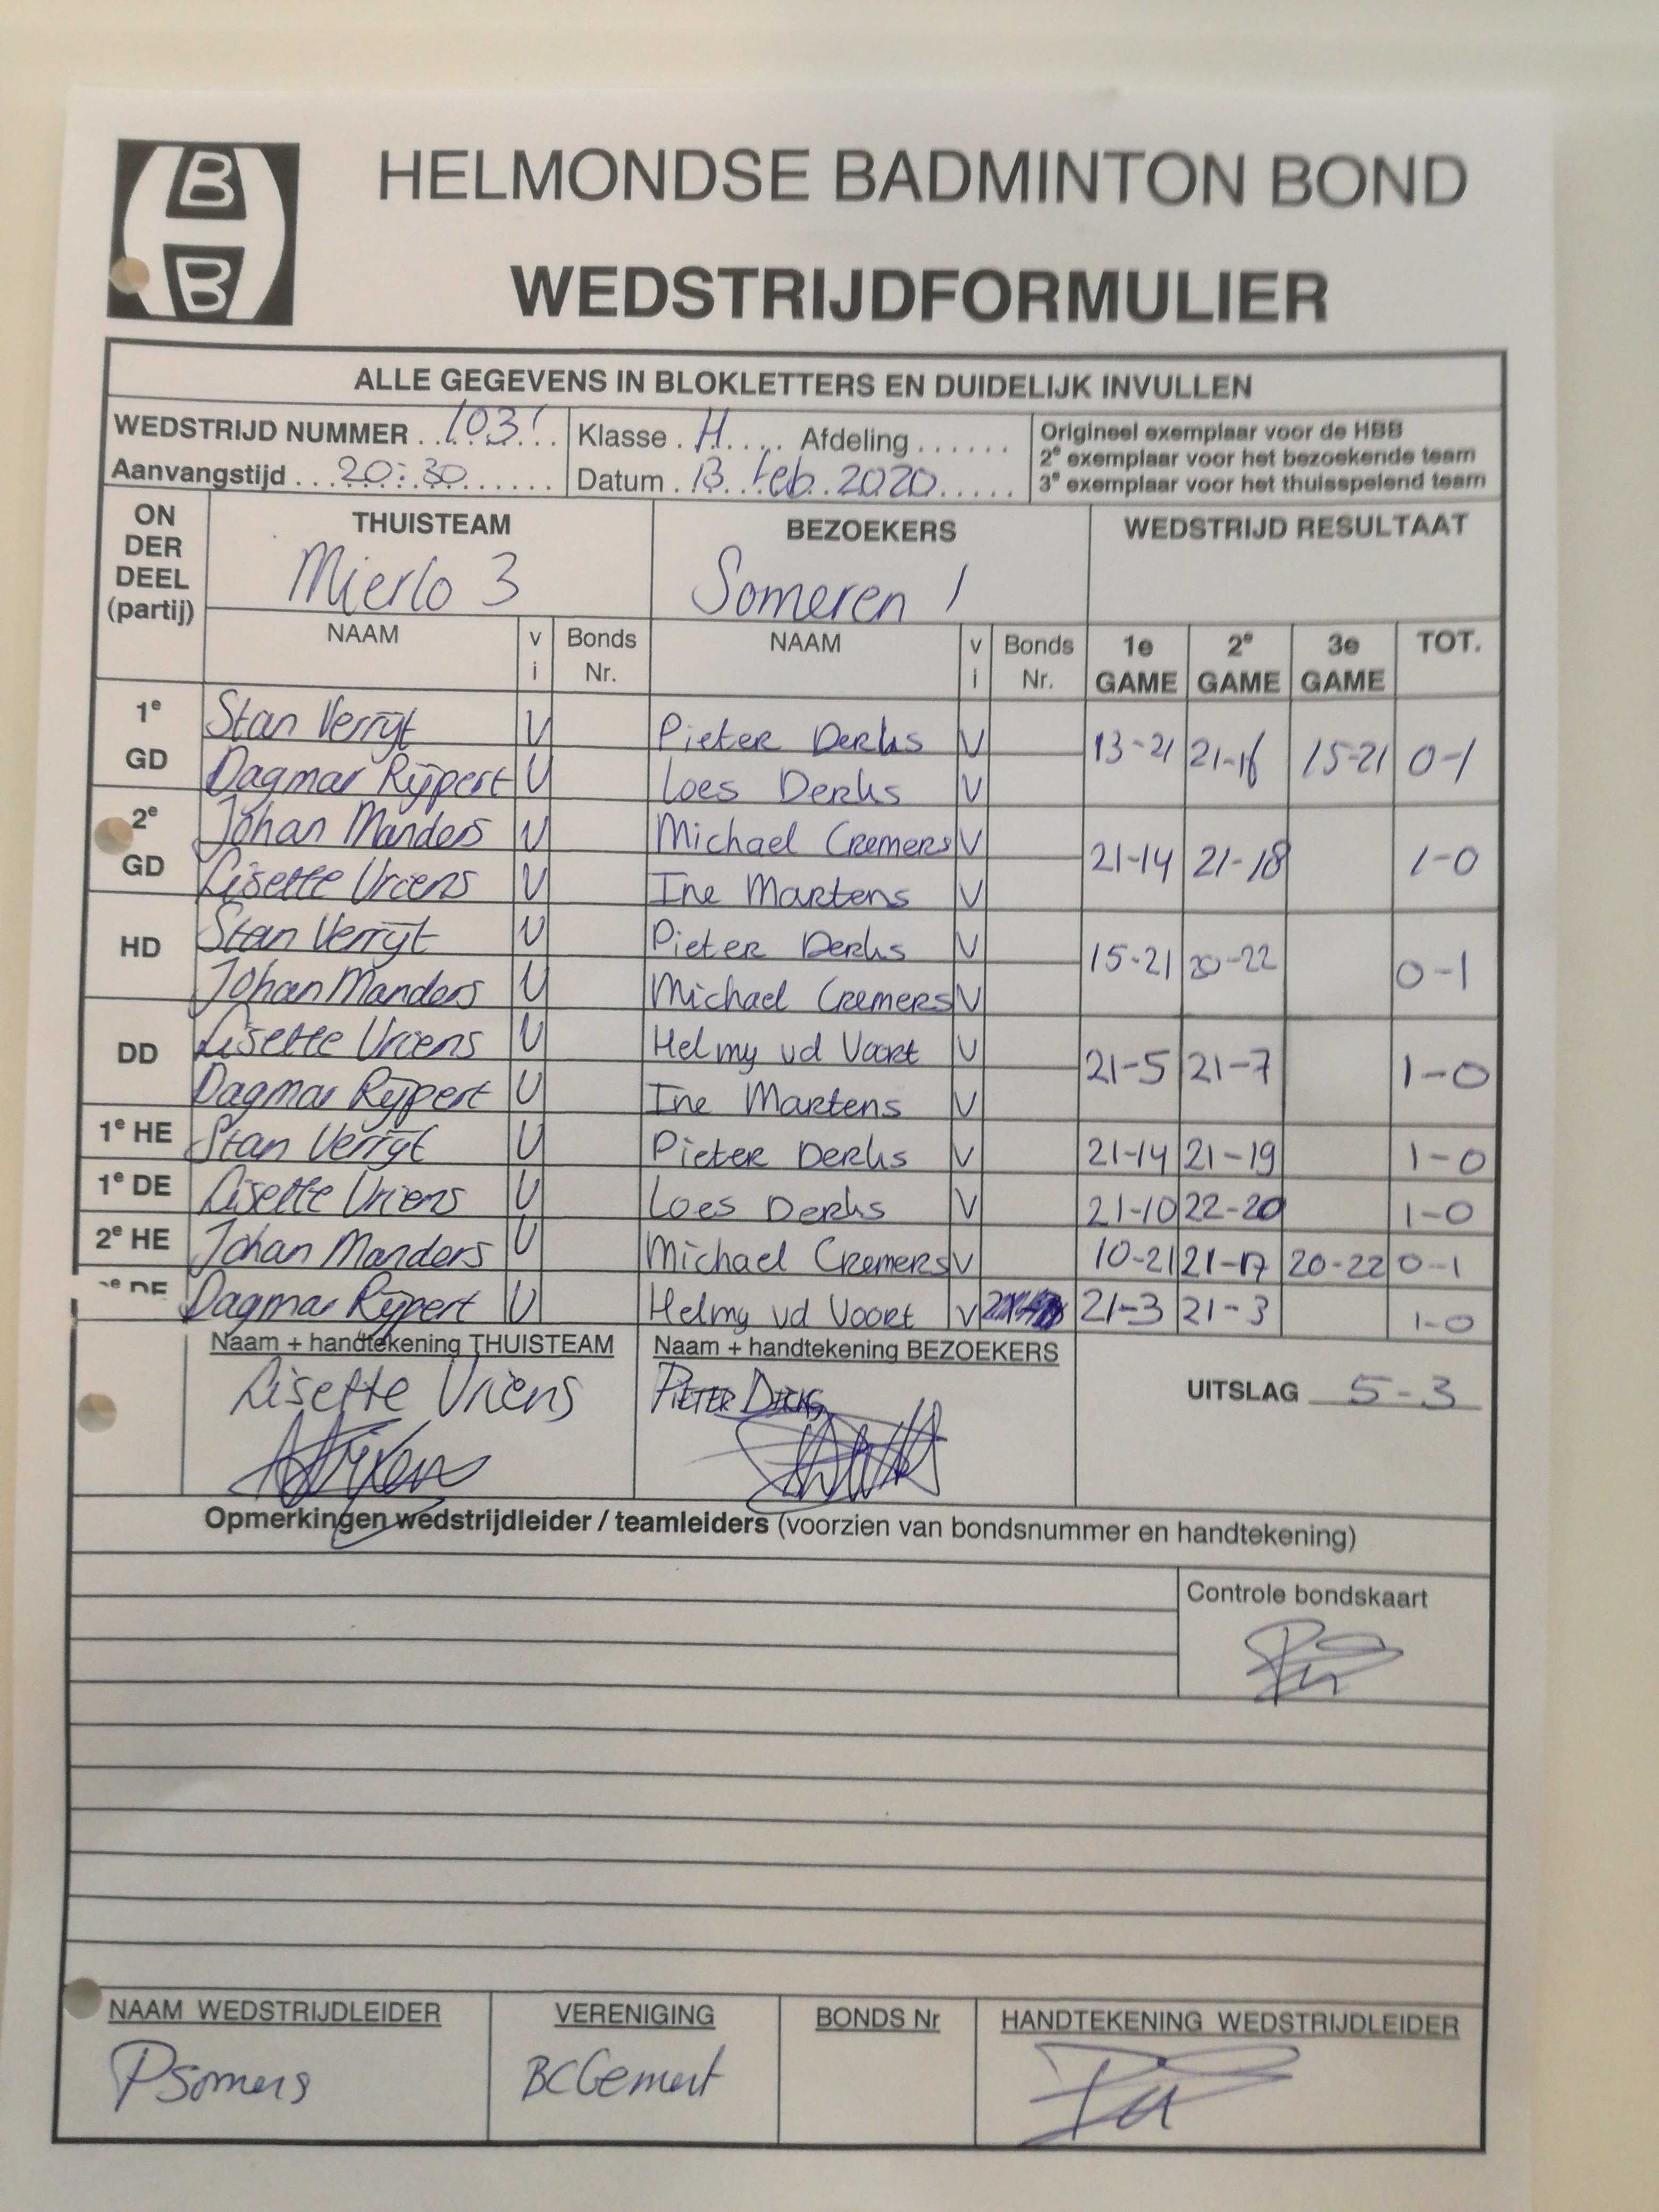 HELMONDSE BADMINTON BOND
WEDSTRIJDFORMULIER
ALLE GEGEVENS IN BLOKLETTERS EN DUIDELIJK INVULLEN
WEDSTRIJD NUMMER 1031 Klasse H Afdeling
Origineel exemplaar voor de HBB
2e exemplaar voor het bezoekende team
3e exemplaar voor het thuisspelend team
Aanvangstijd 20:30 Datum 13 feb 2020
ON DER DEEL (partij) THUISTEAM BEZOEKERS WEDSTRIJD RESULTAAT
Mierlo 3 Someren 1
NAAM v i Bonds Nr. NAAM v i Bonds Nr. 1e GAME 2e GAME 3e GAME TOT.
1e GD Stan Verrijt V Pieter Derks V 13-21 21-16 15-21 0-1
Dagmar Rijpert V Loes Derks V
2e GD Johan Manders V Michael Cremers V 21-14 21-18 1-0
Lisette Vriens V Ine Martens V
HD Stan Verrijt V Pieter Derks V 15-21 20-22 0-1
Johan Manders V Michael Cremers V
DD Lisette Vriens V Helmy vd Voort V 21-5 21-7 1-0
Dagmar Rijpert V Ine Martens V
1e HE Stan Verrijt V Pieter Derks V 21-14 21-19 1-0
1e DE Lisette Vriens V Loes Derks V 21-10 22-20 1-0
2e HE Johan Manders V Michael Cremers V 10-21 21-17 20-22 0-1
e DE Dagmar Rijpert V Helmy vd Voort V 21-3 21-3 1-0
Naam + handtekening THUISTEAM Naam + handtekening BEZOEKERS
Lisette Vriens PIETER DERKS UITSLAG 5-3
Opmerkingen wedstrijdleider / teamleiders (voorzien van bondsnummer en handtekening)
Controle bondskaart
NAAM WEDSTRIJDLEIDER VERENIGING BONDS Nr HANDTEKENING WEDSTRIJDLEIDER
P Somers BC Gemert